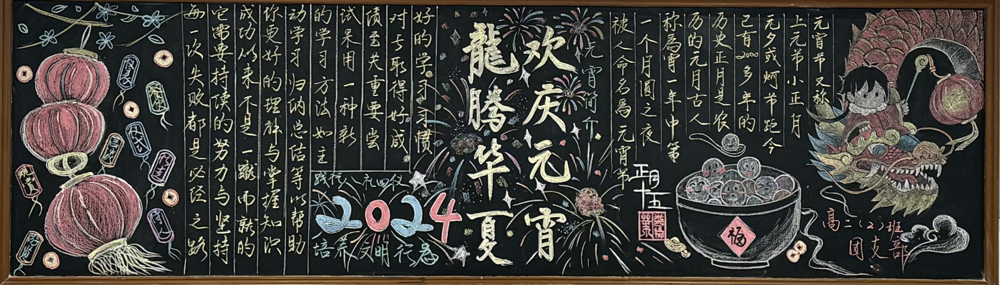 元宵节又称
上元节小正月
元夕或
节距今
已有2000多年的
历史正月是农
历的元月古人
称为宵一年中第
一个月圆之夜
被人命名为元宵节
元宵简介
欢庆元宵
龍腾华夏
好的学习习惯
对于取得好成
绩至关重要尝
试采用一种新
的学习方法如主
动学习归纳总结等以帮助
你更好的理解与掌握知识
成功从来不是一蹴而就的
它需要持续的努力与坚持
每一次失败都是必经之路
践行八礼四仪
2024
培养文明行为
正月十五
福
高二(2)班
团支部